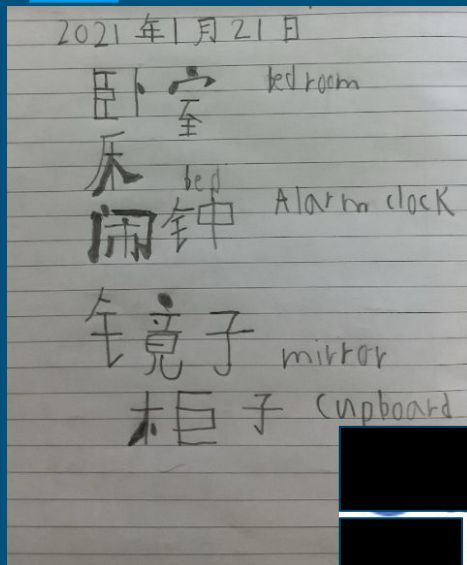 2021年1月21日
卧室 bedroom
床 bed
闹钟 Alarm clock
镜子 mirror
柜子 Cupboard